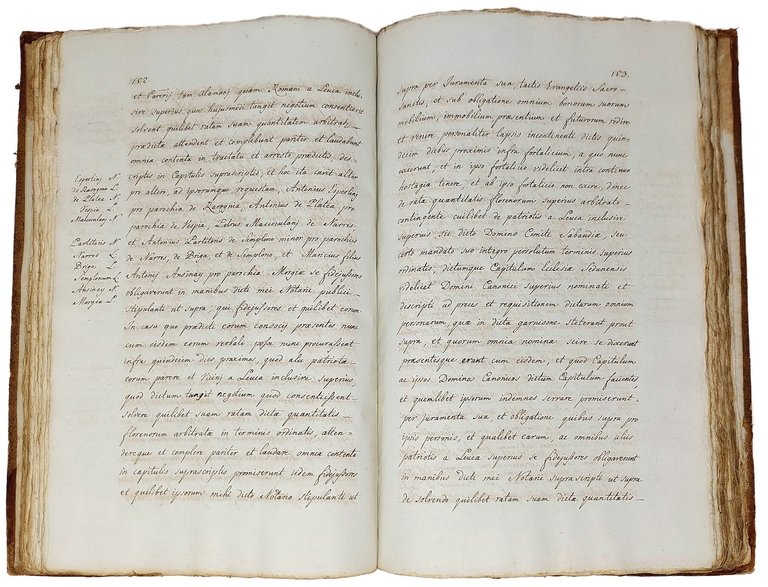 182
et Parcij tam Alamanj quam Romani a Leuca inclu-
sive superius quos hujusmodi tangit negotium consentientes
solvent quilibet ratam suam quantitatem arbitrati,
prædicta attendent et complebunt pariter et laudabunt
omnia contenta in tractatu et arresto prædictis, des-
criptis in Capitulis suprascriptis, et hoc ita cavit alter
pro altero, ad ipsorumque requestam, Antonius Esperlinj
pro parochia de Rarognia, Antonius de Platea pro
parochia de Vespia, Petrus Matriculanj de Narres,
et Antonius Partitoris de Simplono minor pro parochiis
de Narres de Briga et de Simplono, et Marcius filius
Antonij Ansinay pro parochia Morgiæ se fidejussores
obligaverunt in manibus dicti mei Notarii publici
stipulanti ut supra, que fidejussores et quilibet eorum
In casu quo prædicti eorum consocij præsentes nunc
cum eisdem eorum verbali posse nunc procurassent
infra quindecim dies proximos, quod alii patriotæ
eorum parere et Vicinj a Leuca inclusive superius,
quod dictum tangit negotium quod consentissent
solvere quilibet suam ratam dictæ quantitatis
florenorum arbitratæ in terminis ordinatis, atten-
dereque et complere pariter et laudare omnia contenta
in capitulis suprascriptis promiserunt iidem fidejussores
et quilibet ipsorum mihi dicto Notario stipulanti ut
Esperlinj N.
de Rarogna L.
de Platea N.
Vespia L.
Partitoris N.
Narres L.
Briga L.
Simplonum L.
Ansinay N.
Morgia L.
183.
supra per Juramenta sua, tactis Evangeliis Sacro-
sanctis, et sub obligatione omnium bonorum suorum
mobilium, immobilium præsentium et futurorum redire
et venire personaliter lapsis incontenenti dictis quin-
decim diebus proximis infra fortalicium, a quo nunc
exierunt, et in ipso fortalicio videlicet intra continuo
hostagia tenere, et ab ipso fortalicio non exire, donec
de rata quantitatis florenorum superius arbitrato
contingente cuilibet de patriotis a Leuca inclusive
superius sit dicto Domino Comiti Sabaudiæ, seu
certo mandato suo integro persolutum terminis superius
ordinatis; dictumque Capitulum Ecclesiæ Sedunensis
videlicet Domini Canonici superius nominati et
descripti ad preces et requisitionem dictarum omnium
personarum, quæ in dicta garnisone steterant prout
supra, et quorum omnia nomina scire se dixerunt
præsentesque erunt cum eisdem, et quod Capitulum
ac ipsos Dominos Canonicos dictum Capitulum facientes
et quemlibet ipsorum indemnes servare promiserunt
per juramenta sua et obligatione quibus supra pro
ipsis personis, et qualibet earum, ac omnibus aliis
patriotis a Leuca superius se fidejussores obligaverunt
in manibus dicti mei Notarii suprascripti ut supra
de solvendo quilibet ratam suam dictæ quantitatis